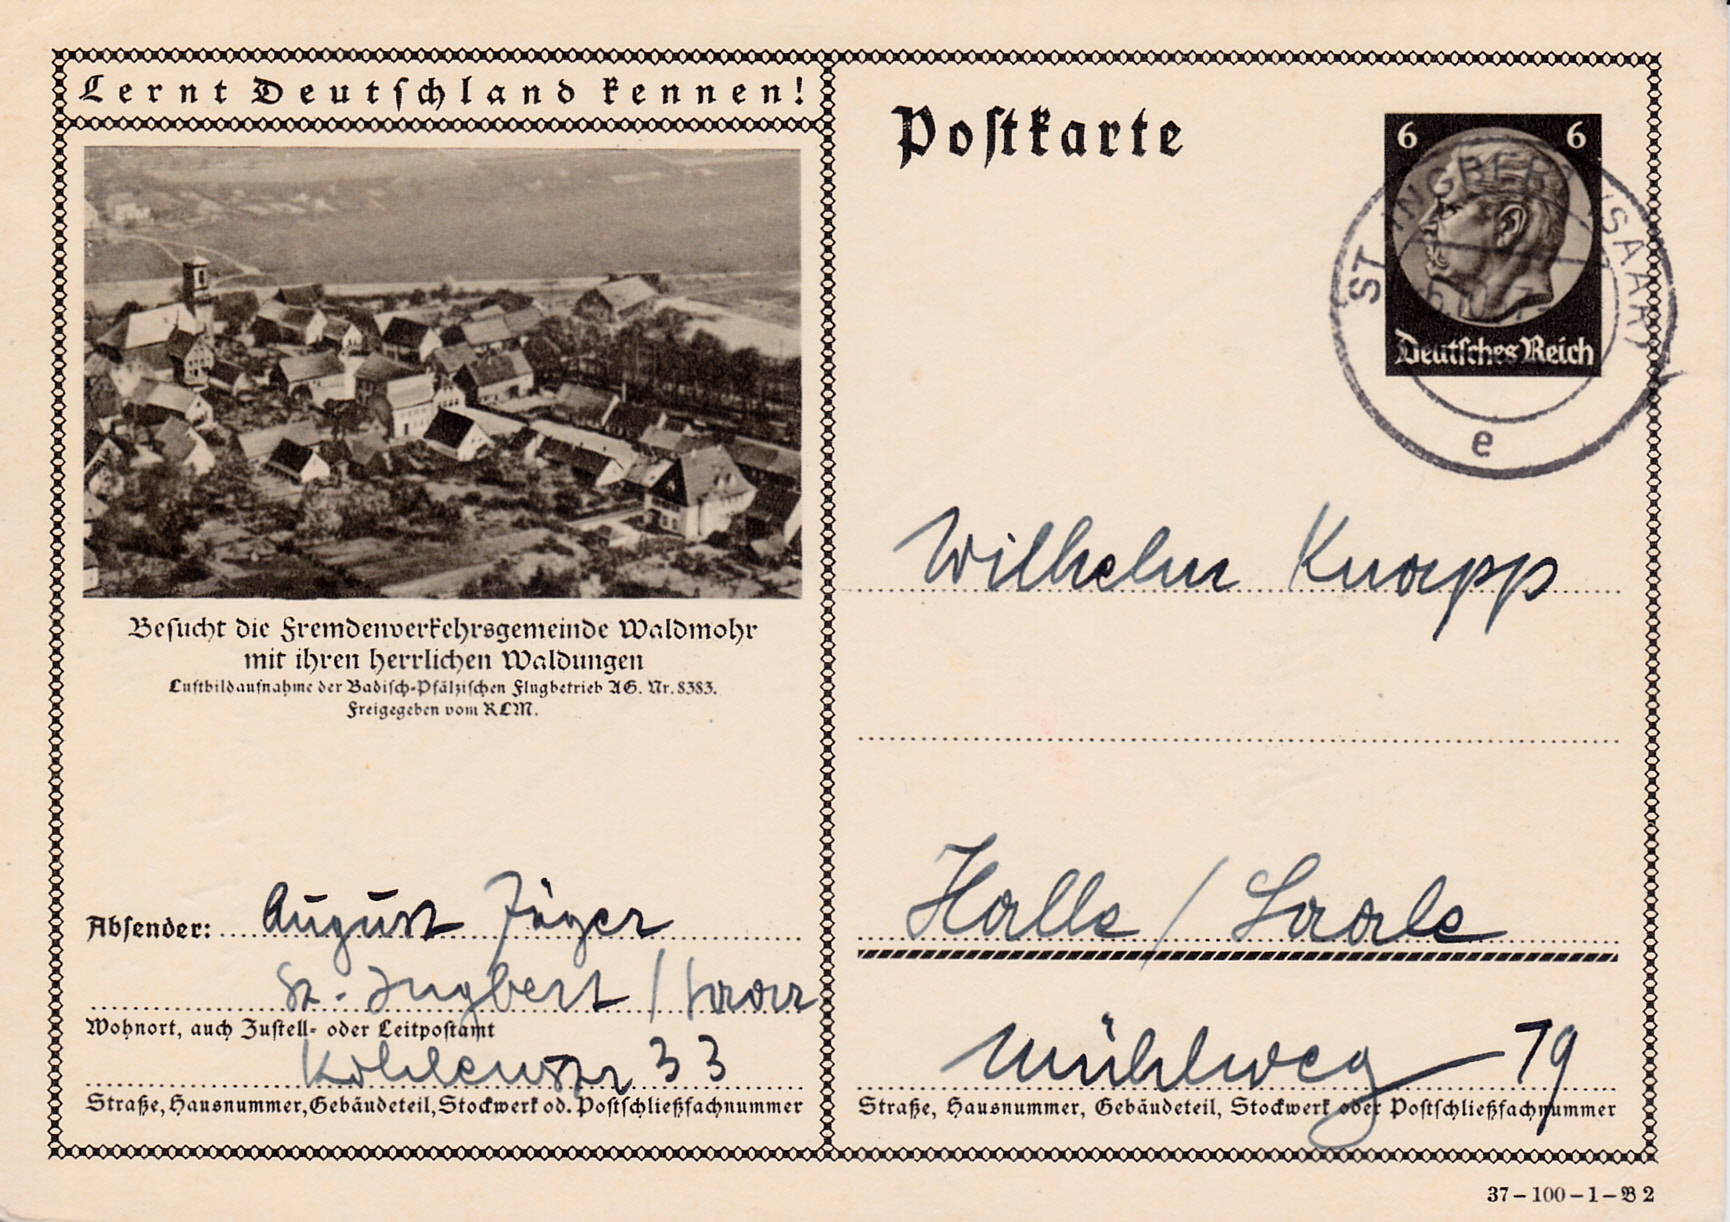 Lernt Deutschland kennen!
Besucht die Fremdenverkehrsgemeinde Waldmohr
mit ihren herrlichen Waldungen
Luftbildaufnahme der Badisch-Pfälzischen Flugbetrieb AG. Nr. 8383.
Freigegeben vom RLM.
Absender: August Jäger
St. Ingbert / Saar
Wohnort, auch Zustell- oder Leitpostamt
Kohlenstr 33
Straße, Hausnummer, Gebäudeteil, Stockwerk od. Postschließfachnummer
Postkarte
6 6
Deutsches Reich
ST INGBERT (SAAR)
e
Wilhelm Knapp
Halle / Saale
Mühlweg 19
Straße, Hausnummer, Gebäudeteil, Stockwerk oder Postschließfachnummer
37 – 100 – 1 – B 2